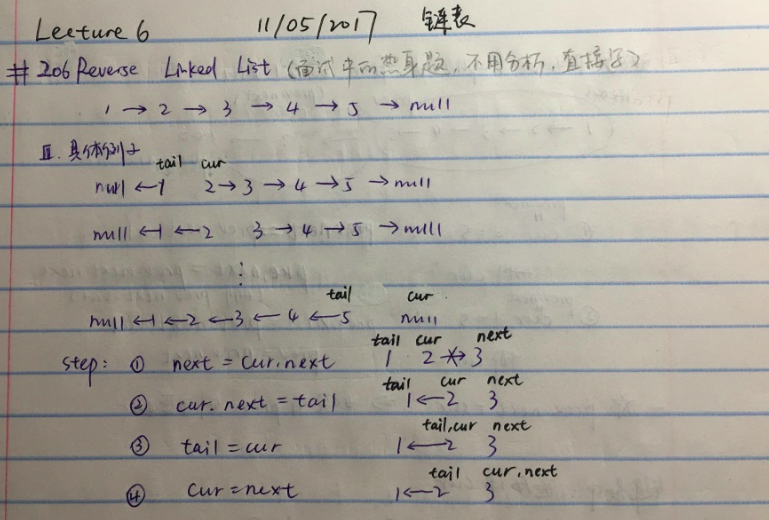 Lecture 6 11/05/2017 链表
# 206 Reverse Linked List (面试中的热身题，不用分析，直接写)
1 → 2 → 3 → 4 → 5 → null
II. 具体例子
tail cur
null ← 1 2 → 3 → 4 → 5 → null
null ← 1 ← 2 3 → 4 → 5 → null
⋮
tail cur
null ← 1 ← 2 ← 3 ← 4 ← 5 null
tail cur next
step: ① next = cur.next 1 2 → 3
tail cur next
② cur.next = tail 1 ← 2 3
tail,cur next
③ tail = cur 1 ← 2 3
tail cur.next
④ cur = next 1 ← 2 3